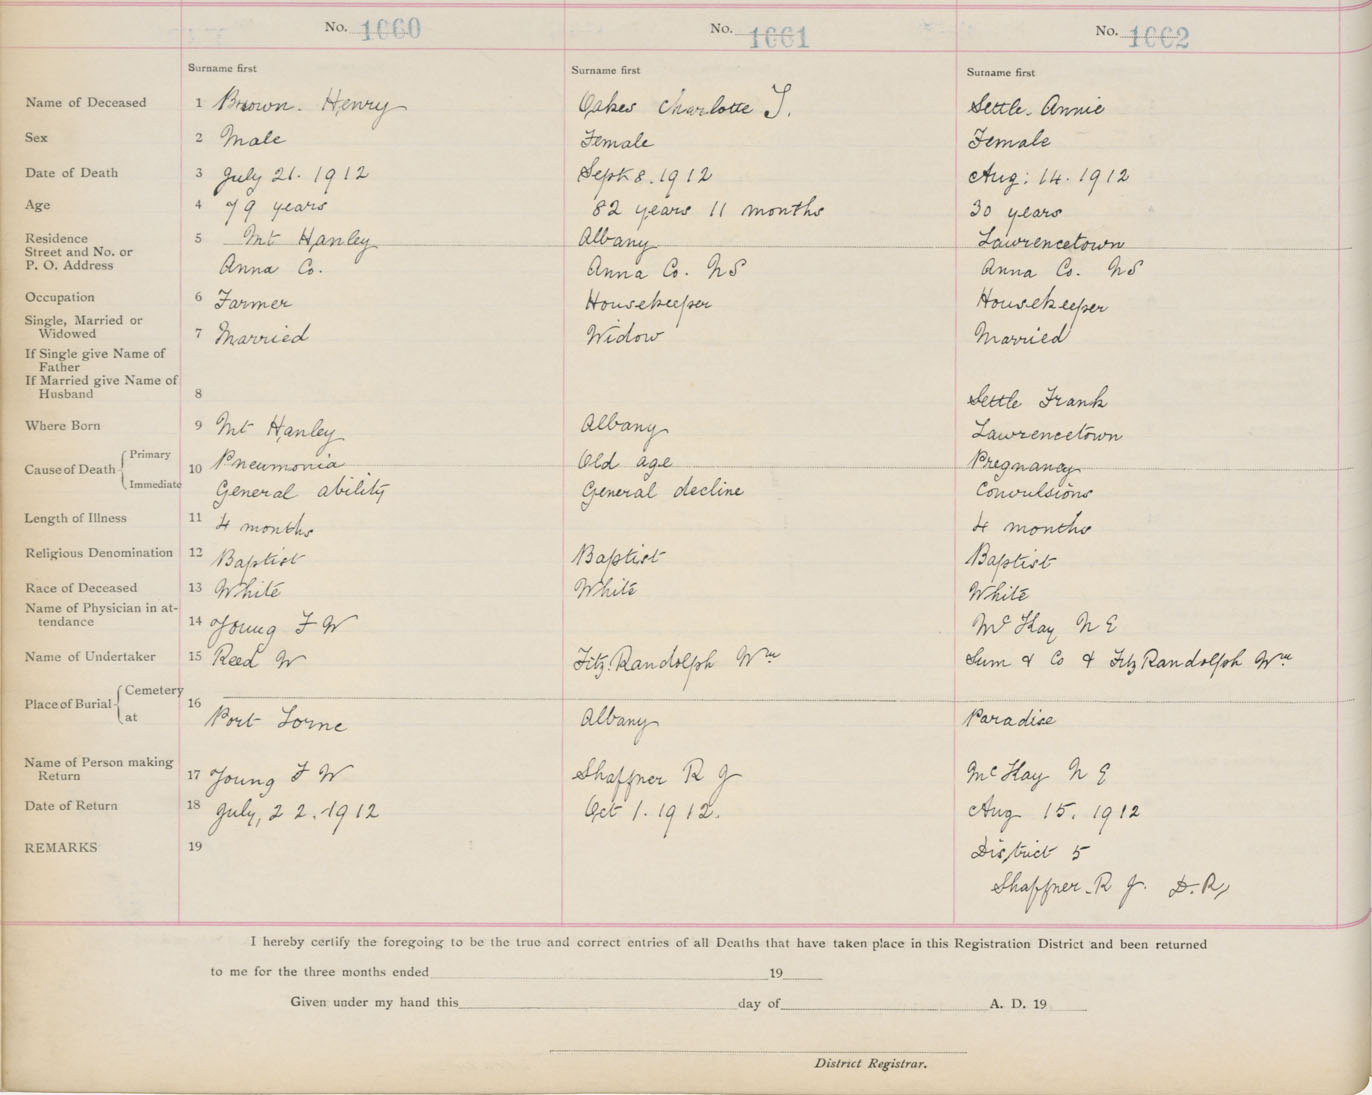 No. 1660 No. 1661 No. 1662
Surname first Surname first Surname first
Name of Deceased 1 Brown. Henry Oakes Charlotte T. Settle. Annie
Sex 2 Male Female Female
Date of Death 3 July 21. 1912 Sept 8. 1912 Aug: 14. 1912
Age 4 79 years 82 years 11 months 30 years
Residence 5 Mt Hanley Albany Lawrencetown
Street and No. or
P. O. Address Anna Co. Anna Co. NS Anna Co. NS
Occupation 6 Farmer Housekeeper Housekeeper
Single, Married or
Widowed 7 Married Widow Married
If Single give Name of
Father
If Married give Name of
Husband 8 Settle Frank
Where Born 9 Mt Hanley Albany Lawrencetown
Cause of Death Primary 10 Pneumonia Old age Pregnancy
Immediate General ability General decline Convulsions
Length of Illness 11 4 months 4 months
Religious Denomination 12 Baptist Baptist Baptist
Race of Deceased 13 White White White
Name of Physician in at-
tendance 14 Young F W McKay N E
Name of Undertaker 15 Reed W Fitz-Randolph Wm & Co & Fitz Randolph Wm
Place of Burial Cemetery 16
at Port Lorne Albany Paradise
Name of Person making
Return 17 Young F W Shaffner R J McKay N E
Date of Return 18 July, 22. 1912 Oct 1. 1912. Aug 15. 1912
REMARKS 19 District 5
Shaffner. R J. D. R,
I hereby certify the foregoing to be the true and correct entries of all Deaths that have taken place in this Registration District and been returned
to me for the three months ended 19
Given under my hand this day of A. D. 19
District Registrar.